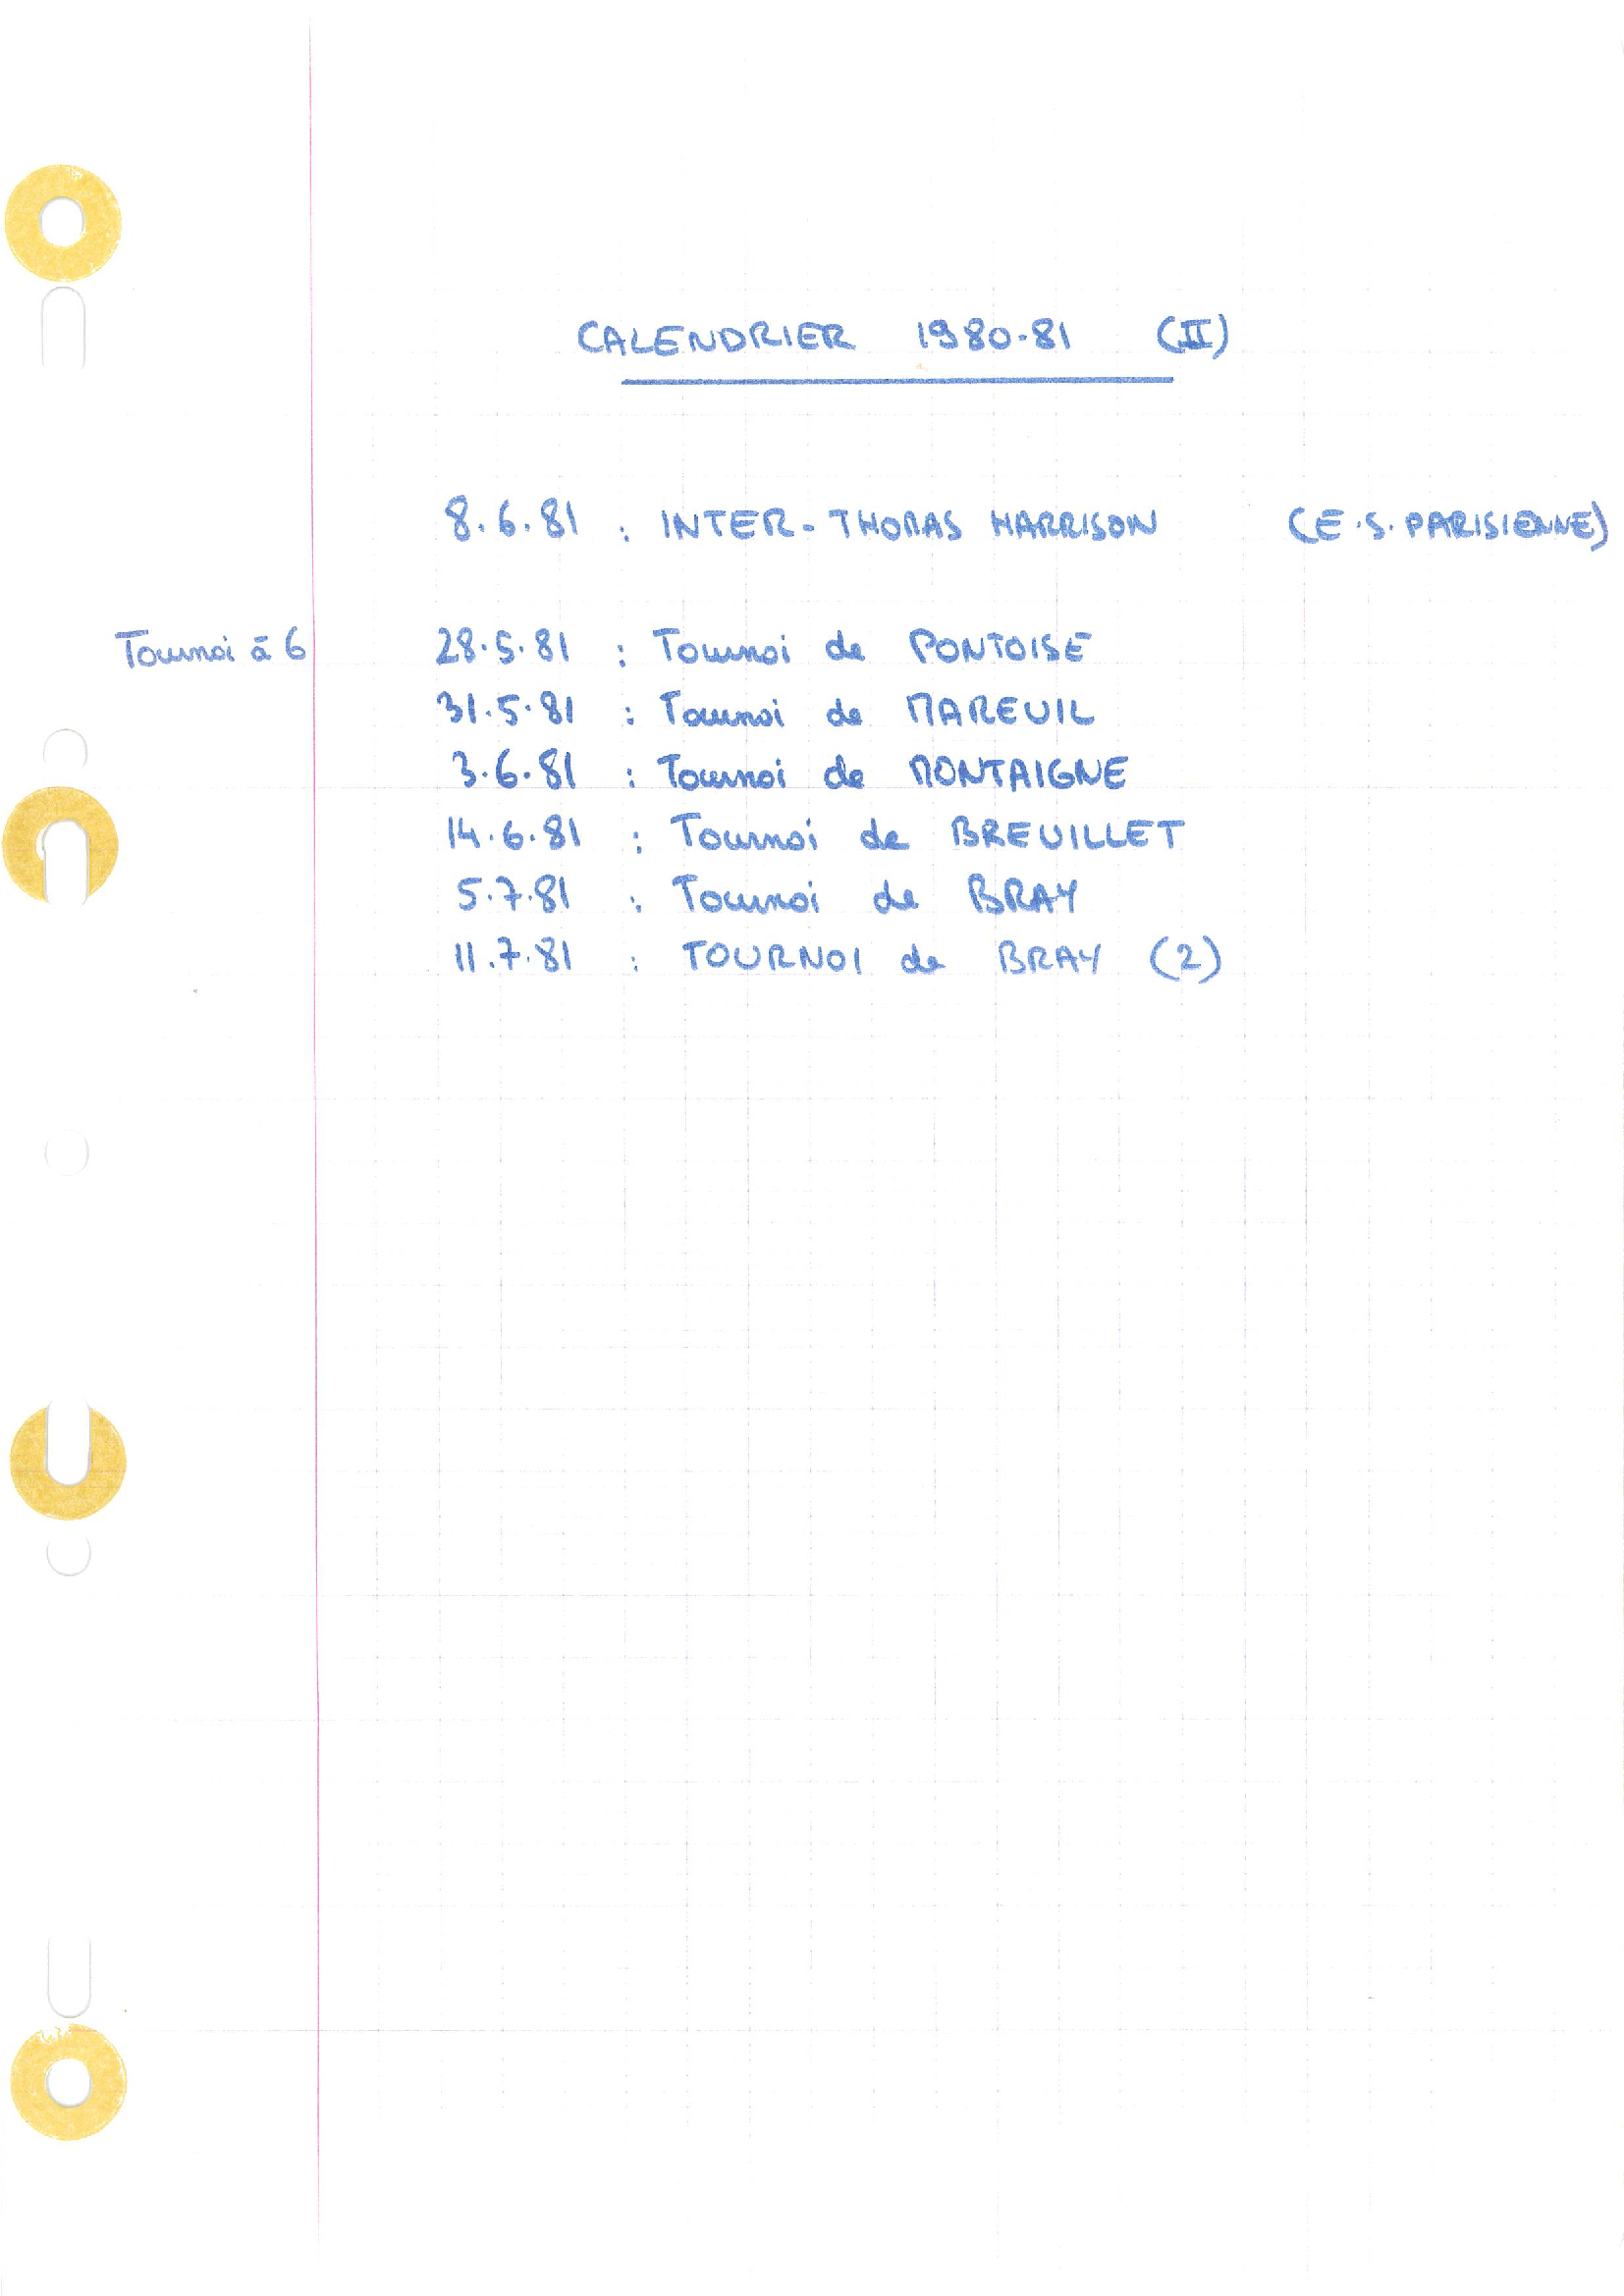 CALENDRIER 1980-81 (II)
8.6.81 : INTER-THOMAS HARRISON (E.S. PARISIENNE)
Tournoi à 6 28.5.81 : Tournoi de PONTOISE
31.5.81 : Tournoi de MAREUIL
3.6.81 : Tournoi de MONTAIGNE
14.6.81 : Tournoi de BREUILLET
5.7.81 : Tournoi de BRAY
11.7.81 : TOURNOI de BRAY (2)